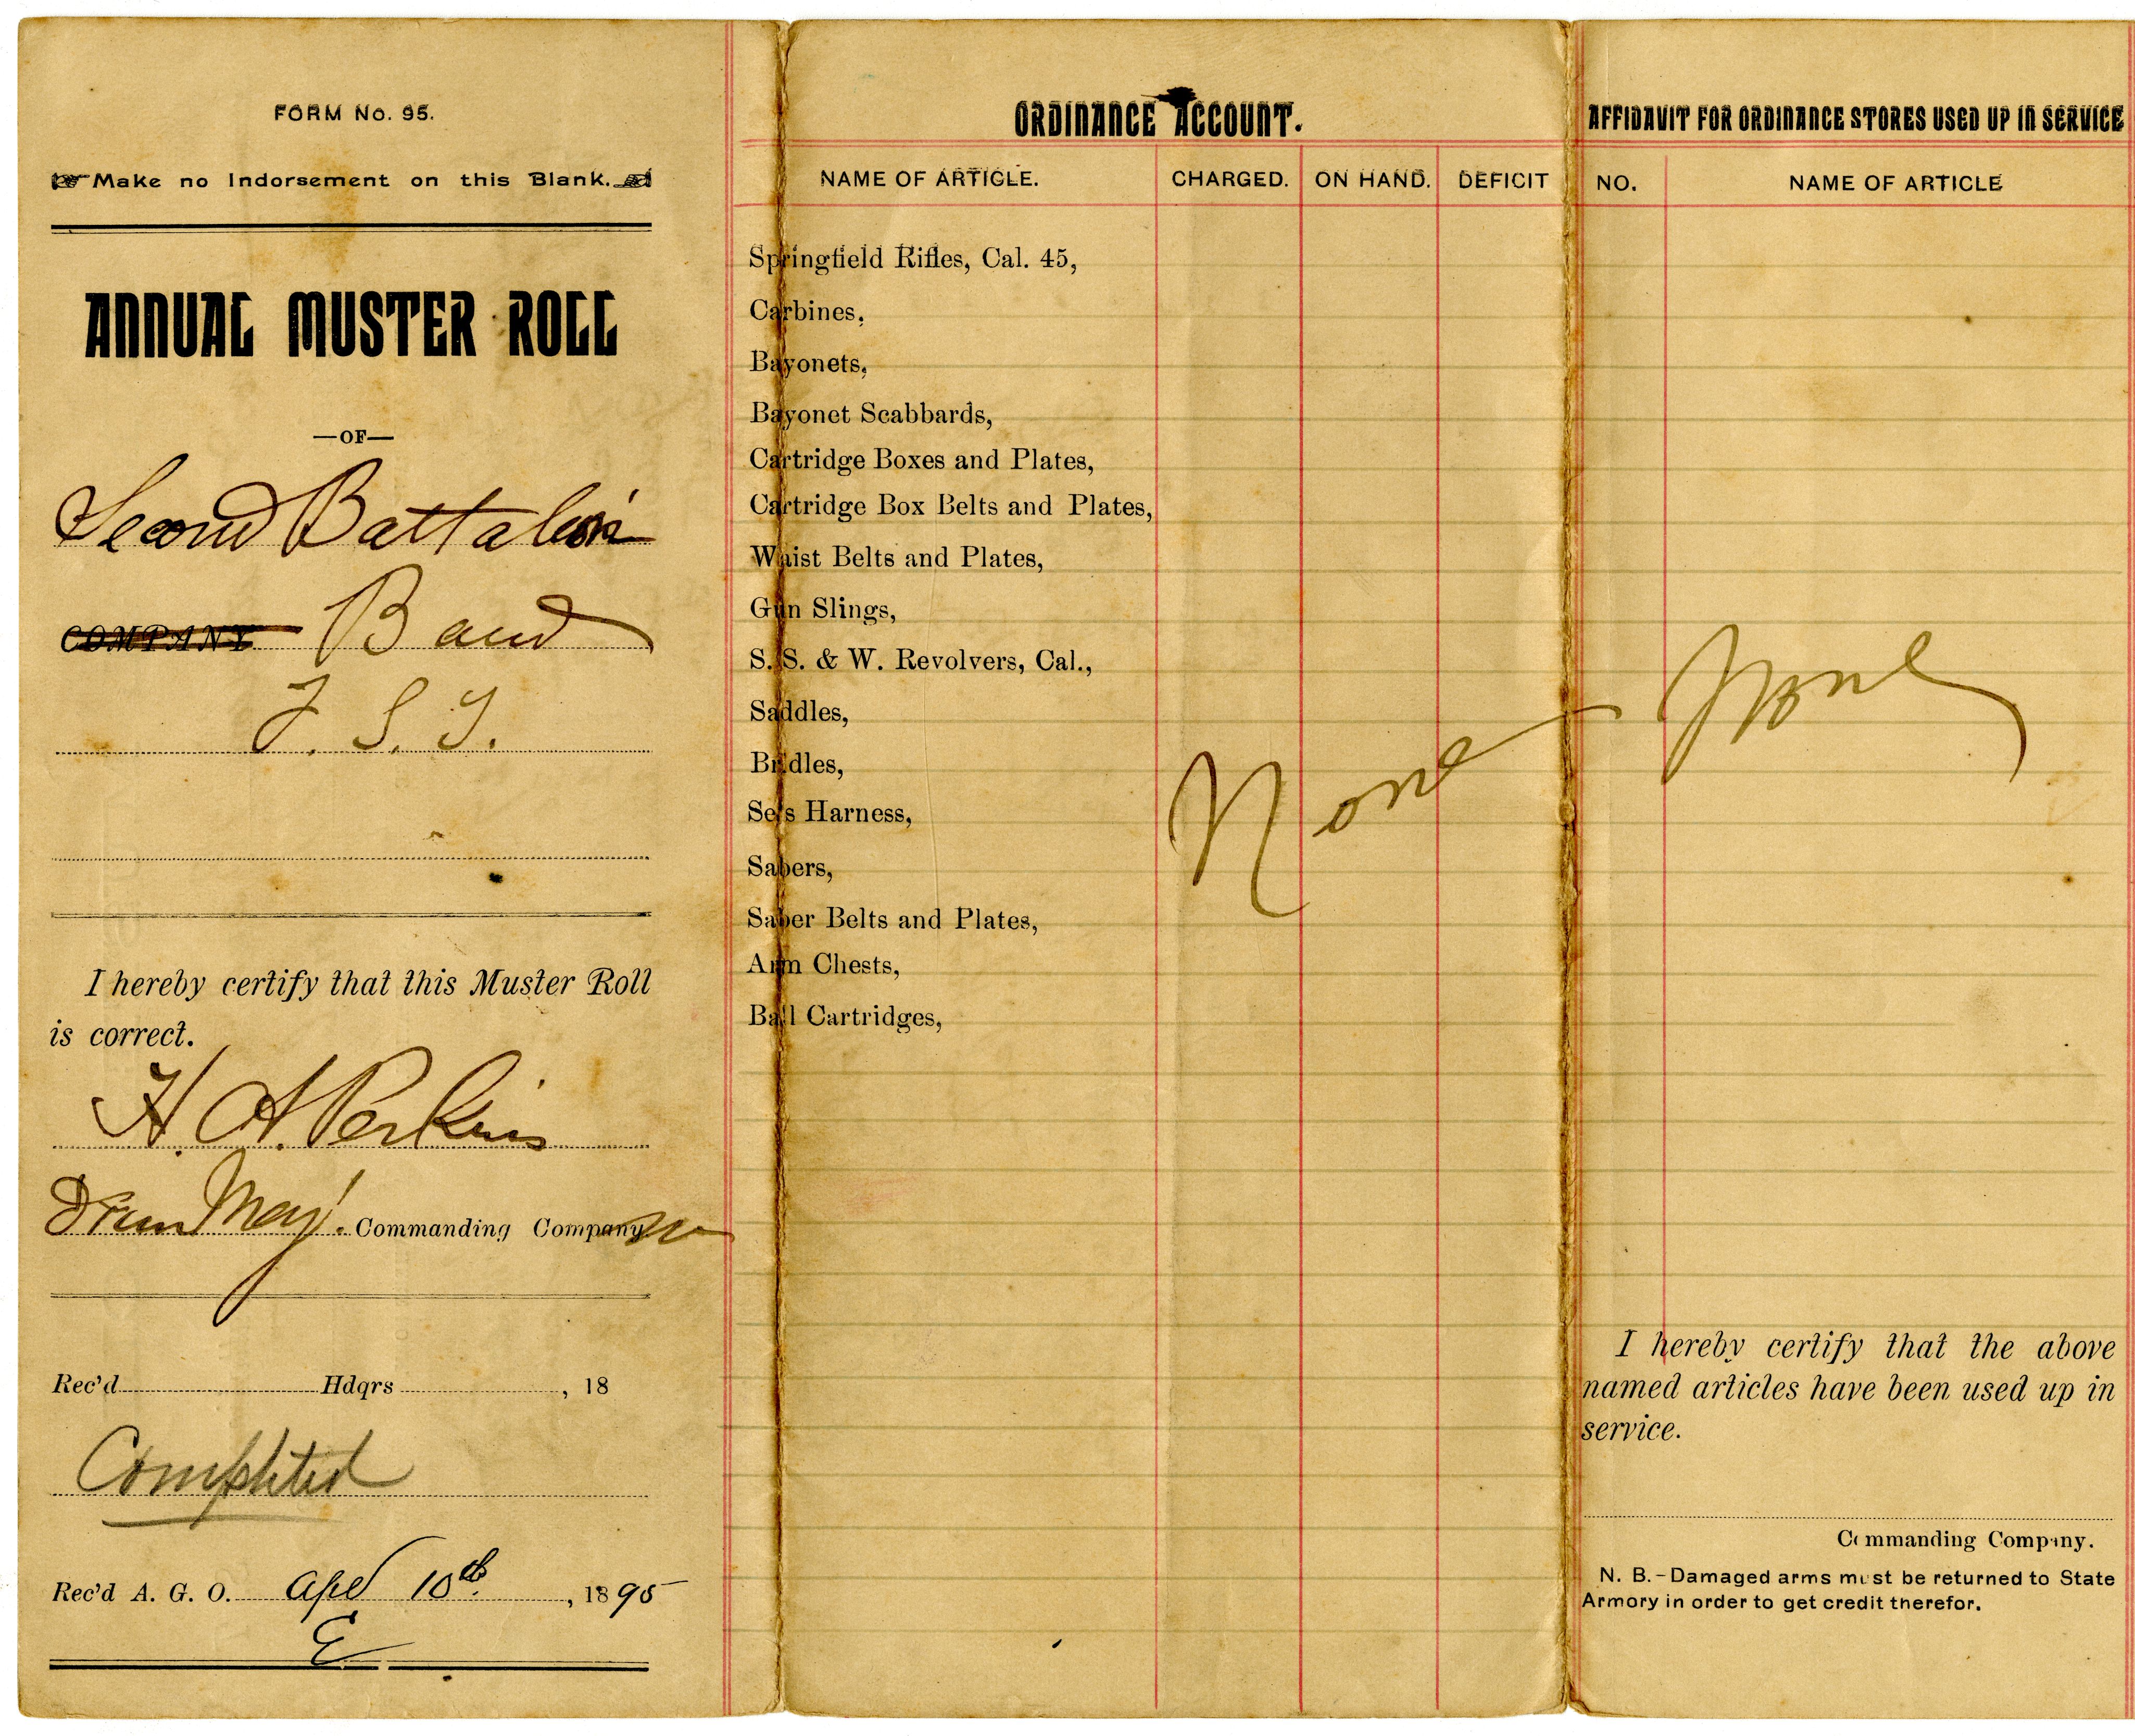 FORM No. 95.
Make no Indorsement on this Blank.
ANNUAL MUSTER ROLL
—OF—
Second Battalion
COMPANY Band
F. S. T.
I hereby certify that this Muster Roll
is correct.
H. A. Perkins
Drum Maj. Commanding Company
Rec'd Hdqrs , 18
Completed
Rec'd A. G. O. Apl 10th , 1895
E
ORDINANCE ACCOUNT.
NAME OF ARTICLE. CHARGED. ON HAND. DEFICIT
Springfield Rifles, Cal. 45,
Carbines,
Bayonets,
Bayonet Scabbards,
Cartridge Boxes and Plates,
Cartridge Box Belts and Plates,
Waist Belts and Plates,
Gun Slings,
S. S. & W. Revolvers, Cal.,
Saddles,
Bridles,
Sets Harness,
Sabers,
Saber Belts and Plates,
Arm Chests,
Ball Cartridges,
None
AFFIDAVIT FOR ORDINANCE STORES USED UP IN SERVICE
NO. NAME OF ARTICLE
None
I hereby certify that the above
named articles have been used up in
service.
Commanding Company.
N. B.-Damaged arms must be returned to State
Armory in order to get credit therefor.